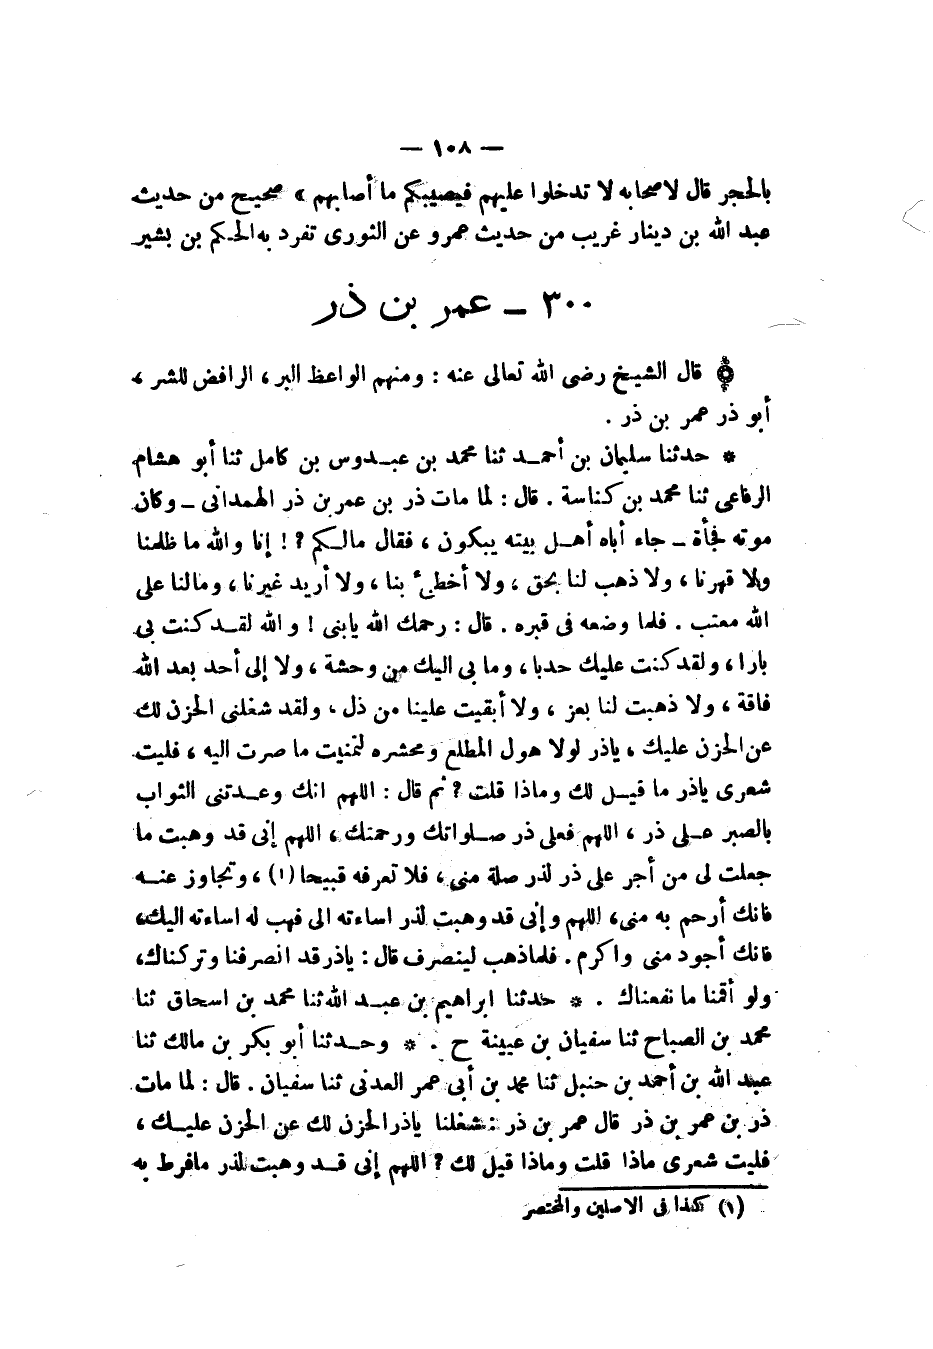 — ١٠٨ —
بالحجر قال لاصحابه لا تدخلوا عليهم فيصيبكم ما أصابهم » صحيح من حديث
عبد الله بن دينار غريب من حديث عمرو عن الثورى تفرد به الحكم بن بشير
٣٠٠ ـ عمر بن ذر
قال الشيخ رضى الله تعالى عنه : ومنهم الواعظ البر ، الرافض للشر ،
أبو ذر عمر بن ذر .
* حدثنا سليمان بن أحمد ثنا محمد بن عبدوس بن كامل ثنا أبو هشام
الرفاعى ثنا محمد بن كناسة . قال : لما مات ذر بن عمر بن ذر الهمدانى ـ وكان
موته فجأة ـ جاء أباه أهل بيته يبكون ، فقال مالكم ؟ ! إنا والله ما ظلمنا
ولا قهرنا ، ولا ذهب لنا بحق ، ولا أخطئ بنا ، ولا أريد غيرنا ، ومالنا على
الله معتب . فلما وضعه فى قبره . قال : رحمك الله يابنى ! والله لقد كنت بى
بارا ، ولقد كنت عليك حدبا ، وما بى اليك من وحشة ، ولا إلى أحد بعد الله
فاقة ، ولا ذهبت لنا بعز ، ولا أبقيت علينا من ذل ، ولقد شغلنى الحزن لك
عن الحزن عليك ، ياذر لولا هول المطلع ومحشره لتمنيت ما صرت اليه ، فليت
شعرى ياذر ما قيل لك وماذا قلت ؟ ثم قال : اللهم انك وعدتنى الثواب
بالصبر على ذر ، اللهم فعلى ذر صلواتك ورحمتك ، اللهم إنى قد وهبت ما
جعلت لى من أجر على ذر لذر صلة منى ، فلا تعرفه قبيحا (١) ، وتجاوز عنه
فانك أرحم به منى ، اللهم وإنى قد وهبت لذر اساءته الى فهب له اساءته اليك ،
فانك أجود منى واكرم . فلما ذهب لينصرف قال : ياذر قد انصرفنا وتركناك ،
ولو أقمنا ما نفعناك . * حدثنا ابراهيم بن عبد الله ثنا محمد بن اسحاق ثنا
محمد بن الصباح ثنا سفيان بن عيينة ح . * وحدثنا أبو بكر بن مالك ثنا
عبد الله بن أحمد بن حنبل ثنا محمد بن أبى عمر العدنى ثنا سفيان . قال : لما مات
ذر بن عمر بن ذر قال عمر بن ذر : شغلنا ياذر الحزن لك عن الحزن عليك ،
فليت شعرى ماذا قلت وماذا قيل لك ؟ اللهم إنى قد وهبت لذر مافرط به
(١) كذا فى الاصلين والمختصر